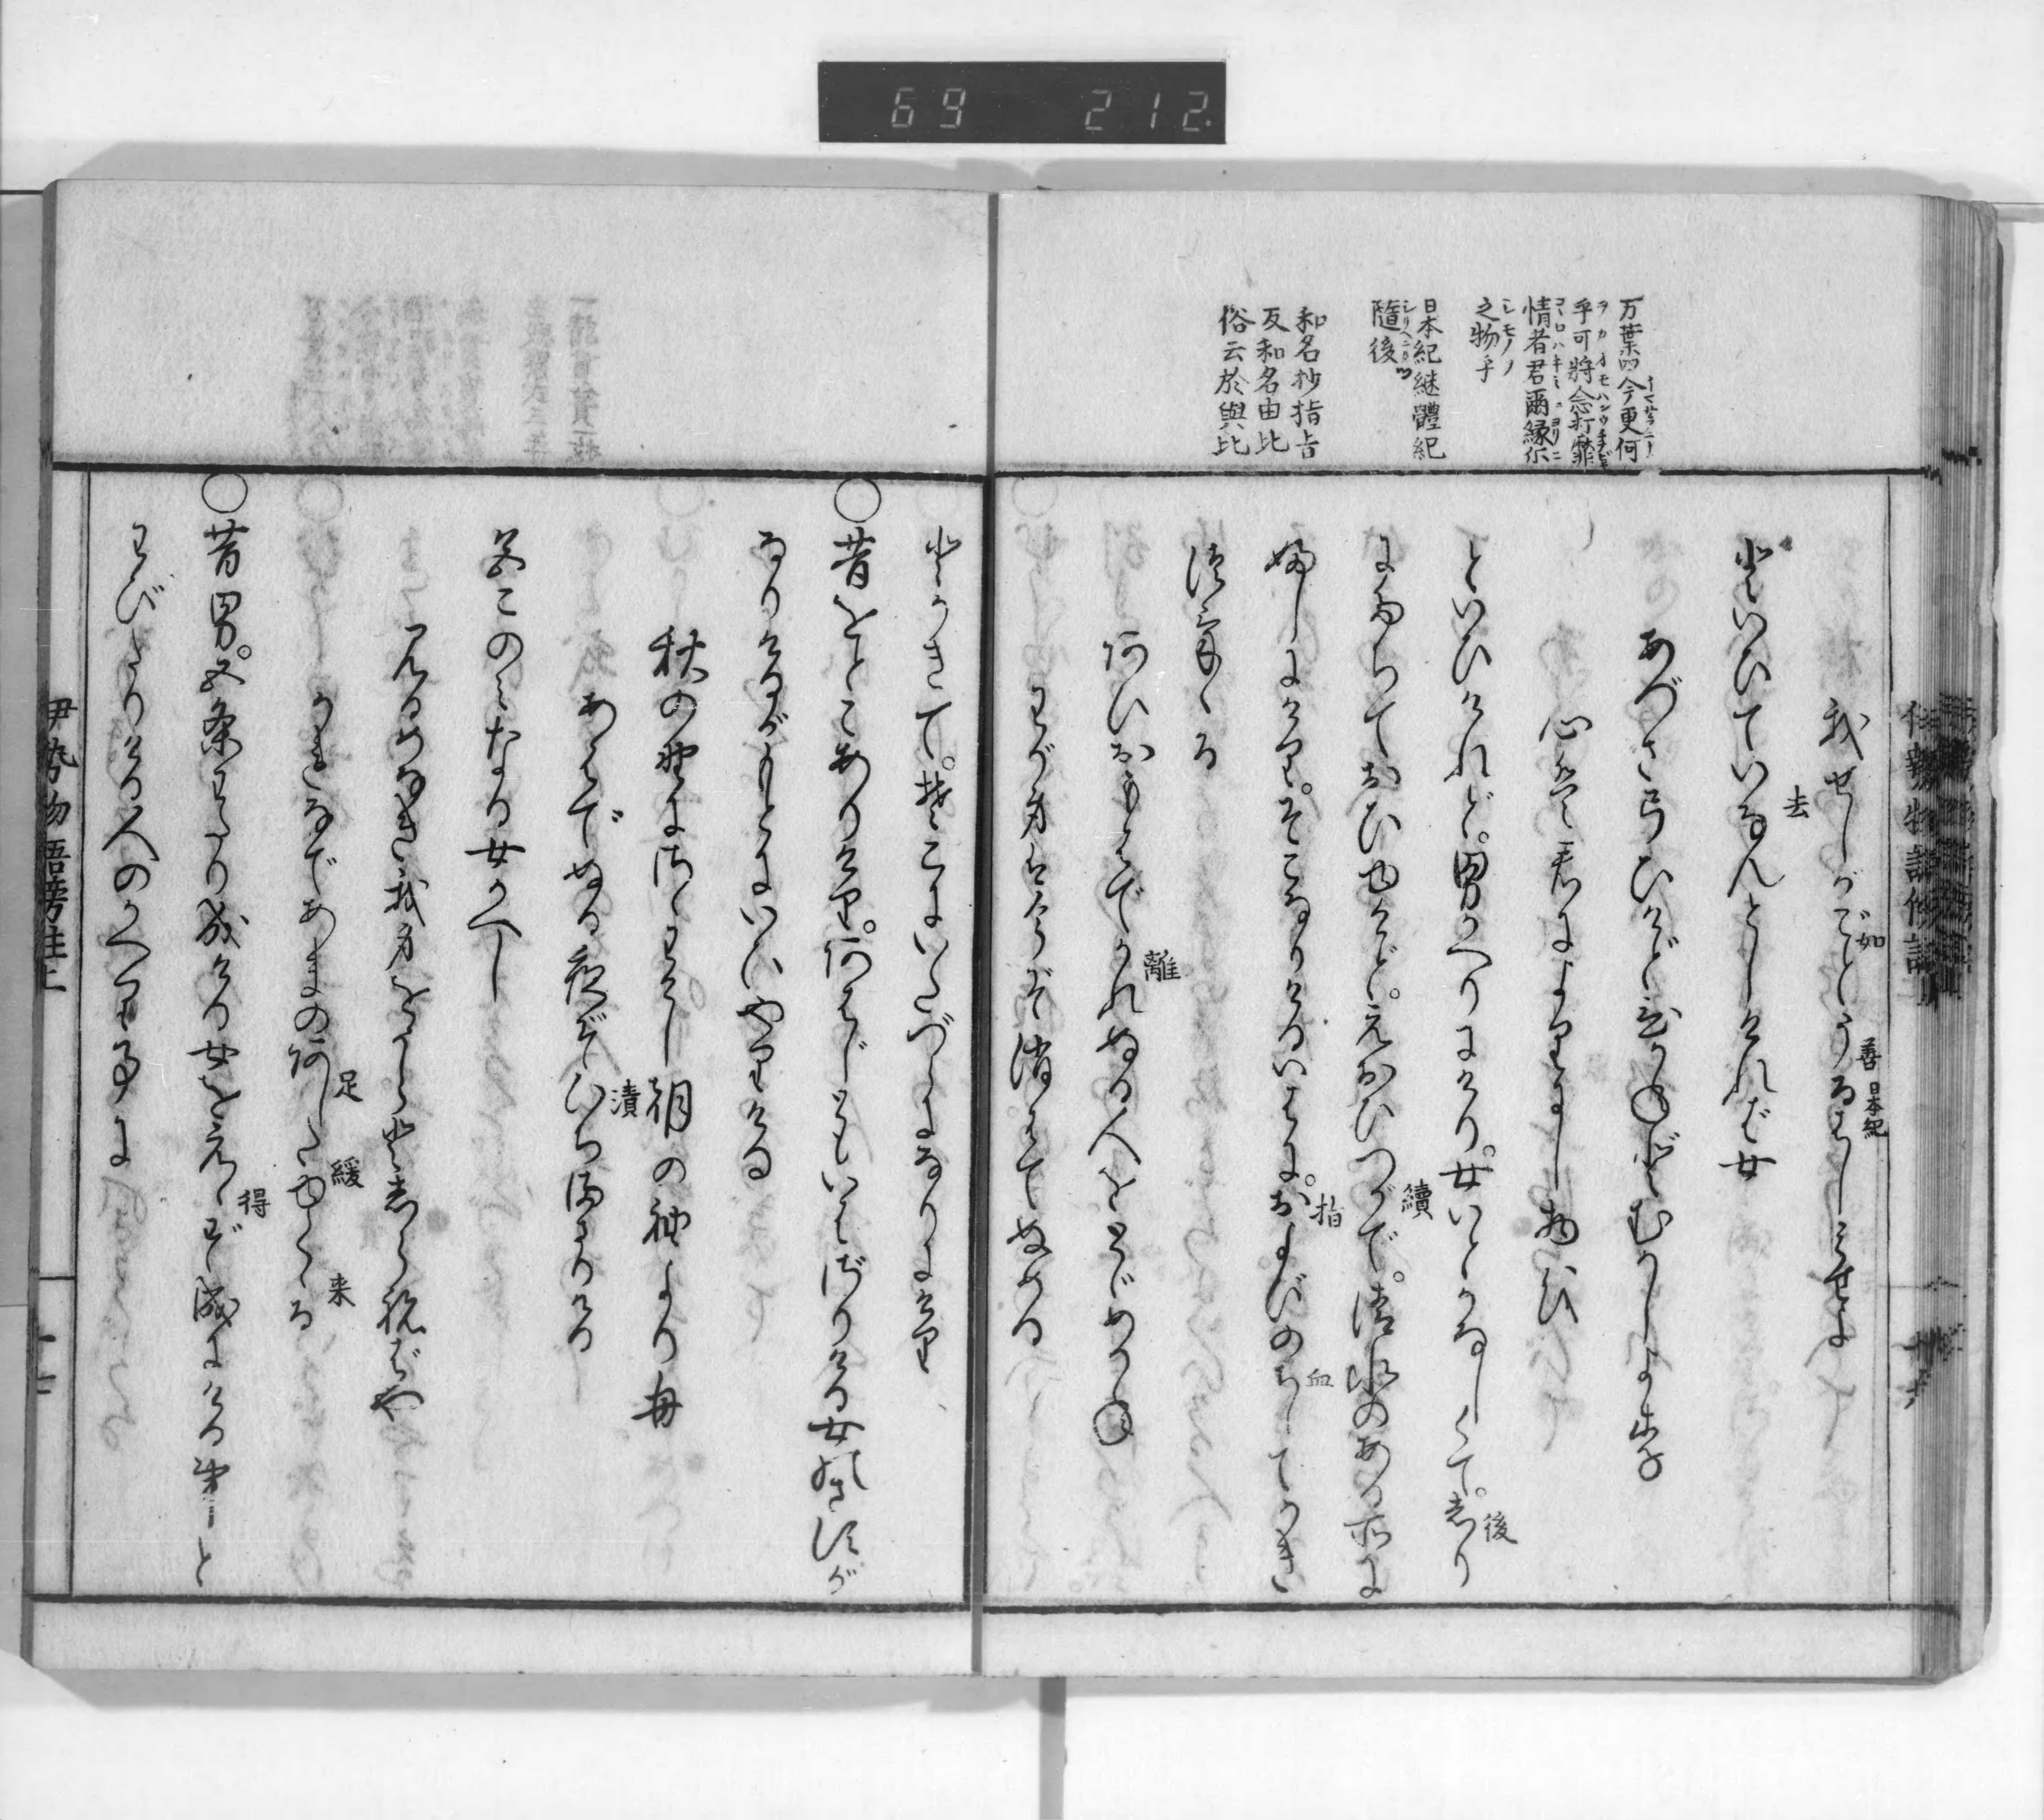 69 212
万葉四今更何
乎可将念打靡
情者君爾縁尓
之物乎
日本紀継體紀
隨後
和名抄指㫖
反和名由比
俗云於與比
我せしがごとうるはしみせよ
如
善 日本紀
といひていなんとしければ女
去
あづさ弓ひけどひかねどむかしより
心は君によりにし物を
といひけれど。男かへりにけり。女いとかなしくて。しり
後
にたちておひゆけど。えおひつかで。清水のある所に
續
ふしにけり。そこなりけるいはに。およびのちしてかき
指
血
つけゝる
あひおもはでかれぬる人をとゞめかね
離
わが身は今ぞ消はてぬめる
とかきて。そこにいたづらになりにけり
○昔をとこありけり。あはじともいはざりける女のさすが
なりけるがもとにいひやりける
秋の野にさゝわけし朝の袖よりも
あはでぬる夜ぞひちまさりける
漬
色このみなる女かへし
見るめなき我身をうらとしらねばや
かれなであまのあしたゆくくる
足
緩
来
○昔男。五条わたり成ける女をえゝず成にける事と
得
わびたりける人のかへりごとに
伊勢物語傍註上